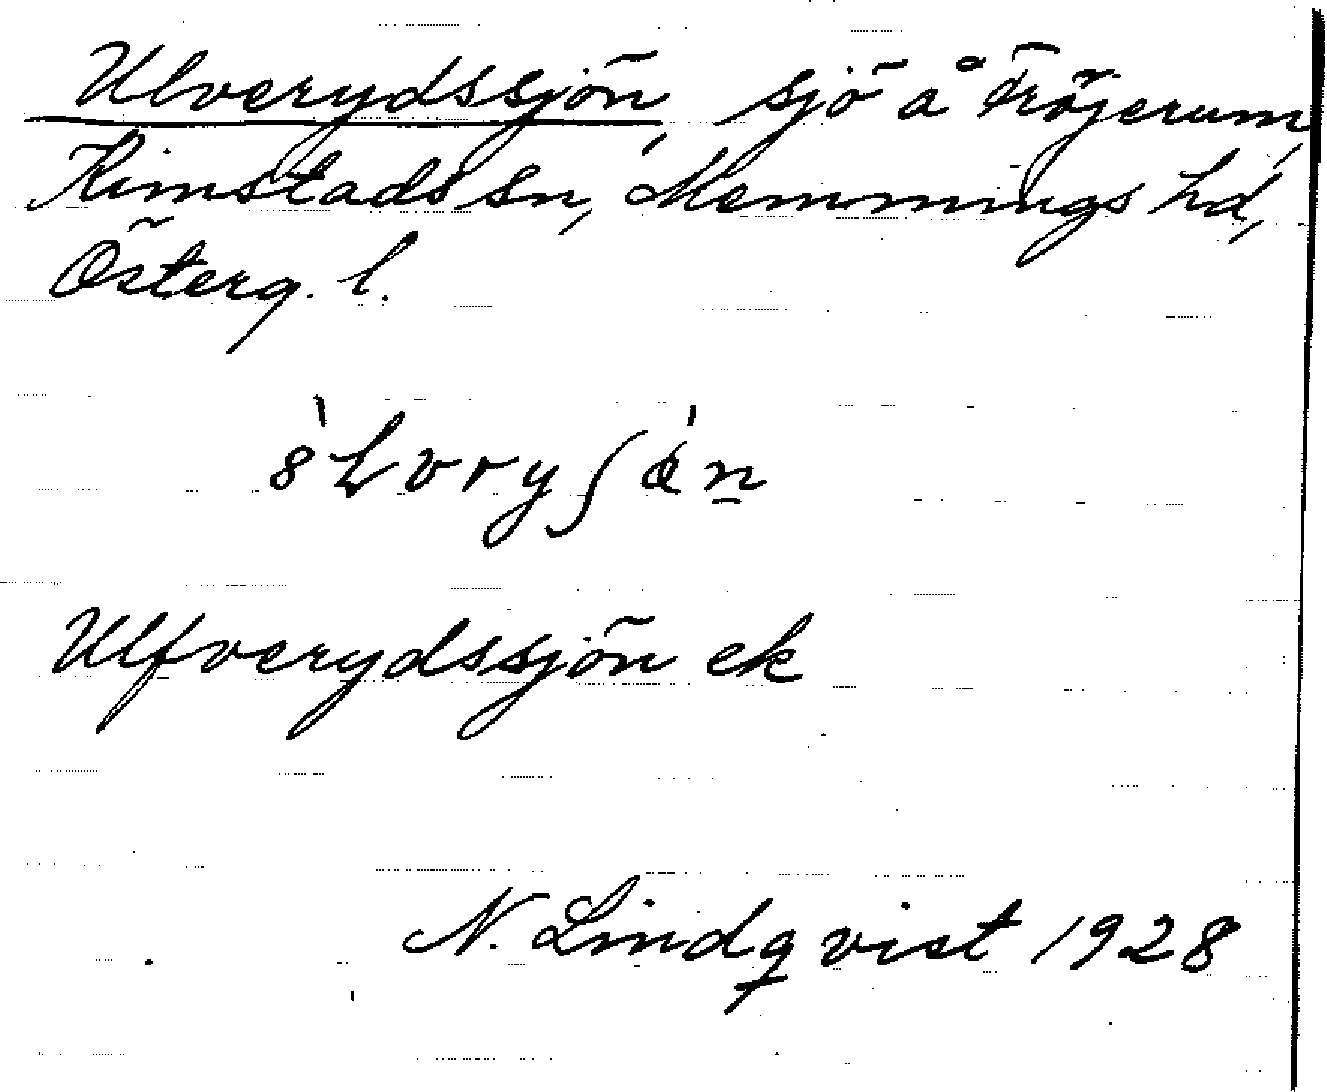 Ulverydssjön, sjö å Fröjerum,
Kimstads sn, Memmings hd,
Österg. l.
Ulfverydssjön ek
N. Lindqvist 1928